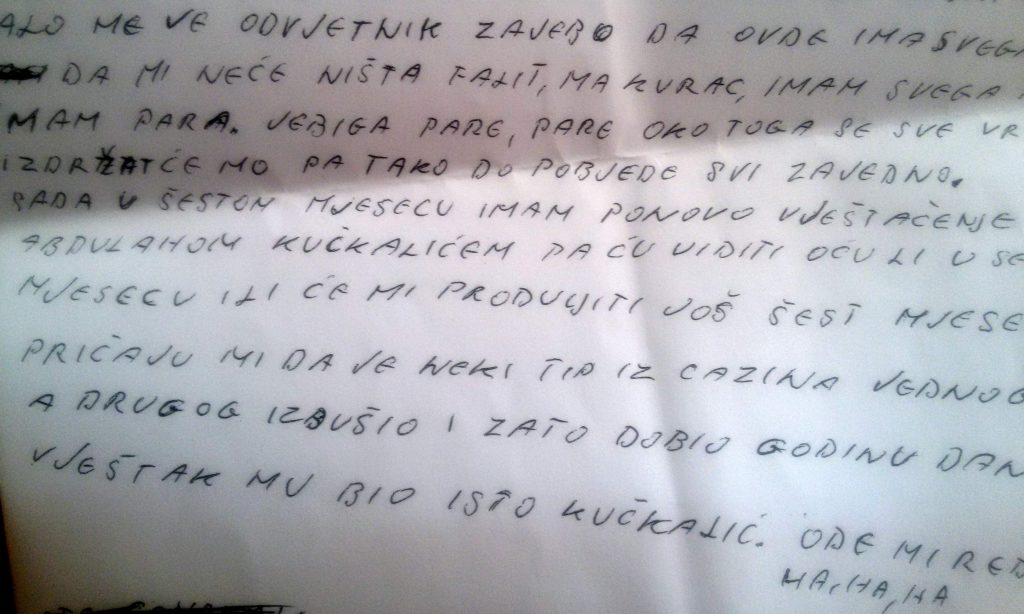 ALO ME VE ODVJETNIK ZAJEBO DA OVDE IMA SVEGA
DA MI NEĆE NIŠTA FALIT, MA KURAC, IMAM SVEGA
IMAM PARA. JEBIGA PARE, PARE OKO TOGA SE SVE VR
IZDRŽAT ĆE MO PA TAKO DO POBJEDE SVI ZAJEDNO.
SADA U ŠESTOM MJESECU IMAM PONOVO VJEŠTAČENJE
ABDULAHOM KUČKALIĆEM PA ĆU VIDITI OĆU LI U SE
MJESECU ILI ĆE MI PRODULJITI JOŠ ŠEST MJESE
PRIČAJU MI DA JE NEKI TIP IZ CAZINA JEDNOG
A DRUGOG IZBUŠIO I ZATO DOBIO GODINU DAN
VJEŠTAK MU BIO ISTO KUČKALIĆ. ODE MI RED
HA, HA, HA